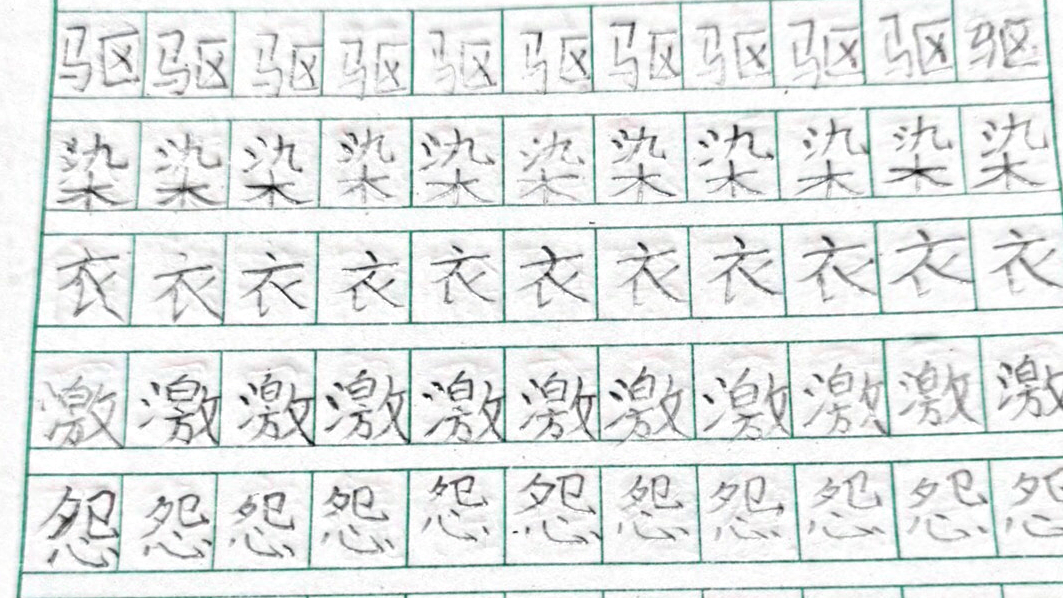 驱驱驱驱驱驱驱驱驱驱驱
染染染染染染染染染染染
衣衣衣衣衣衣衣衣衣衣衣
激激激激激激激激激激激
怨怨怨怨怨怨怨怨怨怨怨